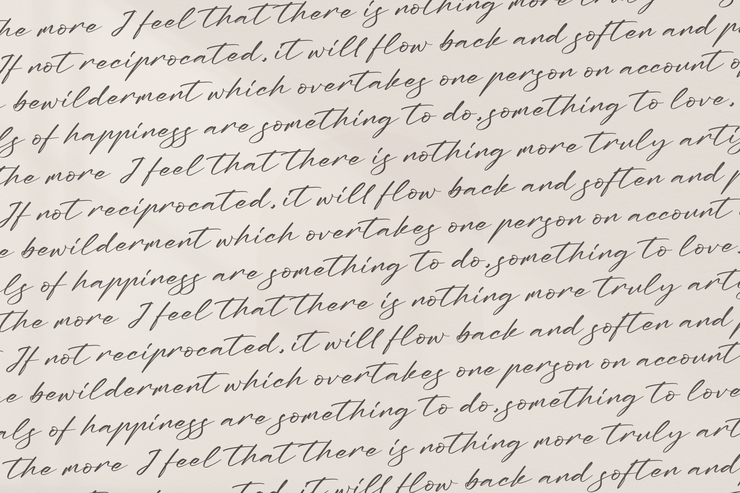 he more I feel that there is nothing more
If not reciprocated, it will flow back and soften and
bewilderment which overtakes one person on account
ls of happiness are something to do, something to love.
the more I feel that there is nothing more truly arti
If not reciprocated, it will flow back and soften and p
e bewilderment which overtakes one person on account
ls of happiness are something to do, something to love.
the more I feel that there is nothing more truly arti
If not reciprocated, it will flow back and soften and p
e bewilderment which overtakes one person on account
als of happiness are something to do, something to love
the more I feel that there is nothing more truly art
it will flow back and soften and